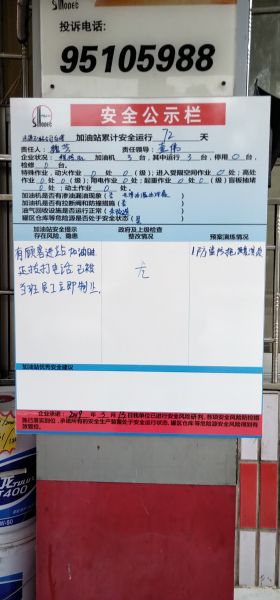 Sinopec
Sinopec
投诉电话:
95105988
安全公示栏
加油站累计安全运行 72 天
责任人: 责任领导:
企业状况: 加油机 3 台,其中运行 3 台,停用 0 台,
检修 0 台。
特殊作业,动火作业 0 处 0 (级);进入受限空间作业 0 处;高处
作业 0 处 0 (级);临时用电作业 0 处;起重作业 0 处 0 (级);盲板抽堵
0 处;动土作业 0 处。
加油机是否有渗油漏油现象(
加油机是否有拉断阀和防撞措施(
油气回收设施是否运行正常(
罐区仓库等危险源是否处于安全状态(是
加油站安全提示
存在风险、隐患
政府及上级检查
整改情况
预案演练情况
有顾客进站加油时
正拨打电话,已被
当班员工立即制止
无
加油站优秀安全建议
企业承诺: 2019 年 3 月 13 日我单位已进行安全风险研判,各项安全风险防控措
施已落实到位,承诺所有的安全生产装置处于安全运行状态,罐区仓库等危险源安全风险得到有
效管控。
T400